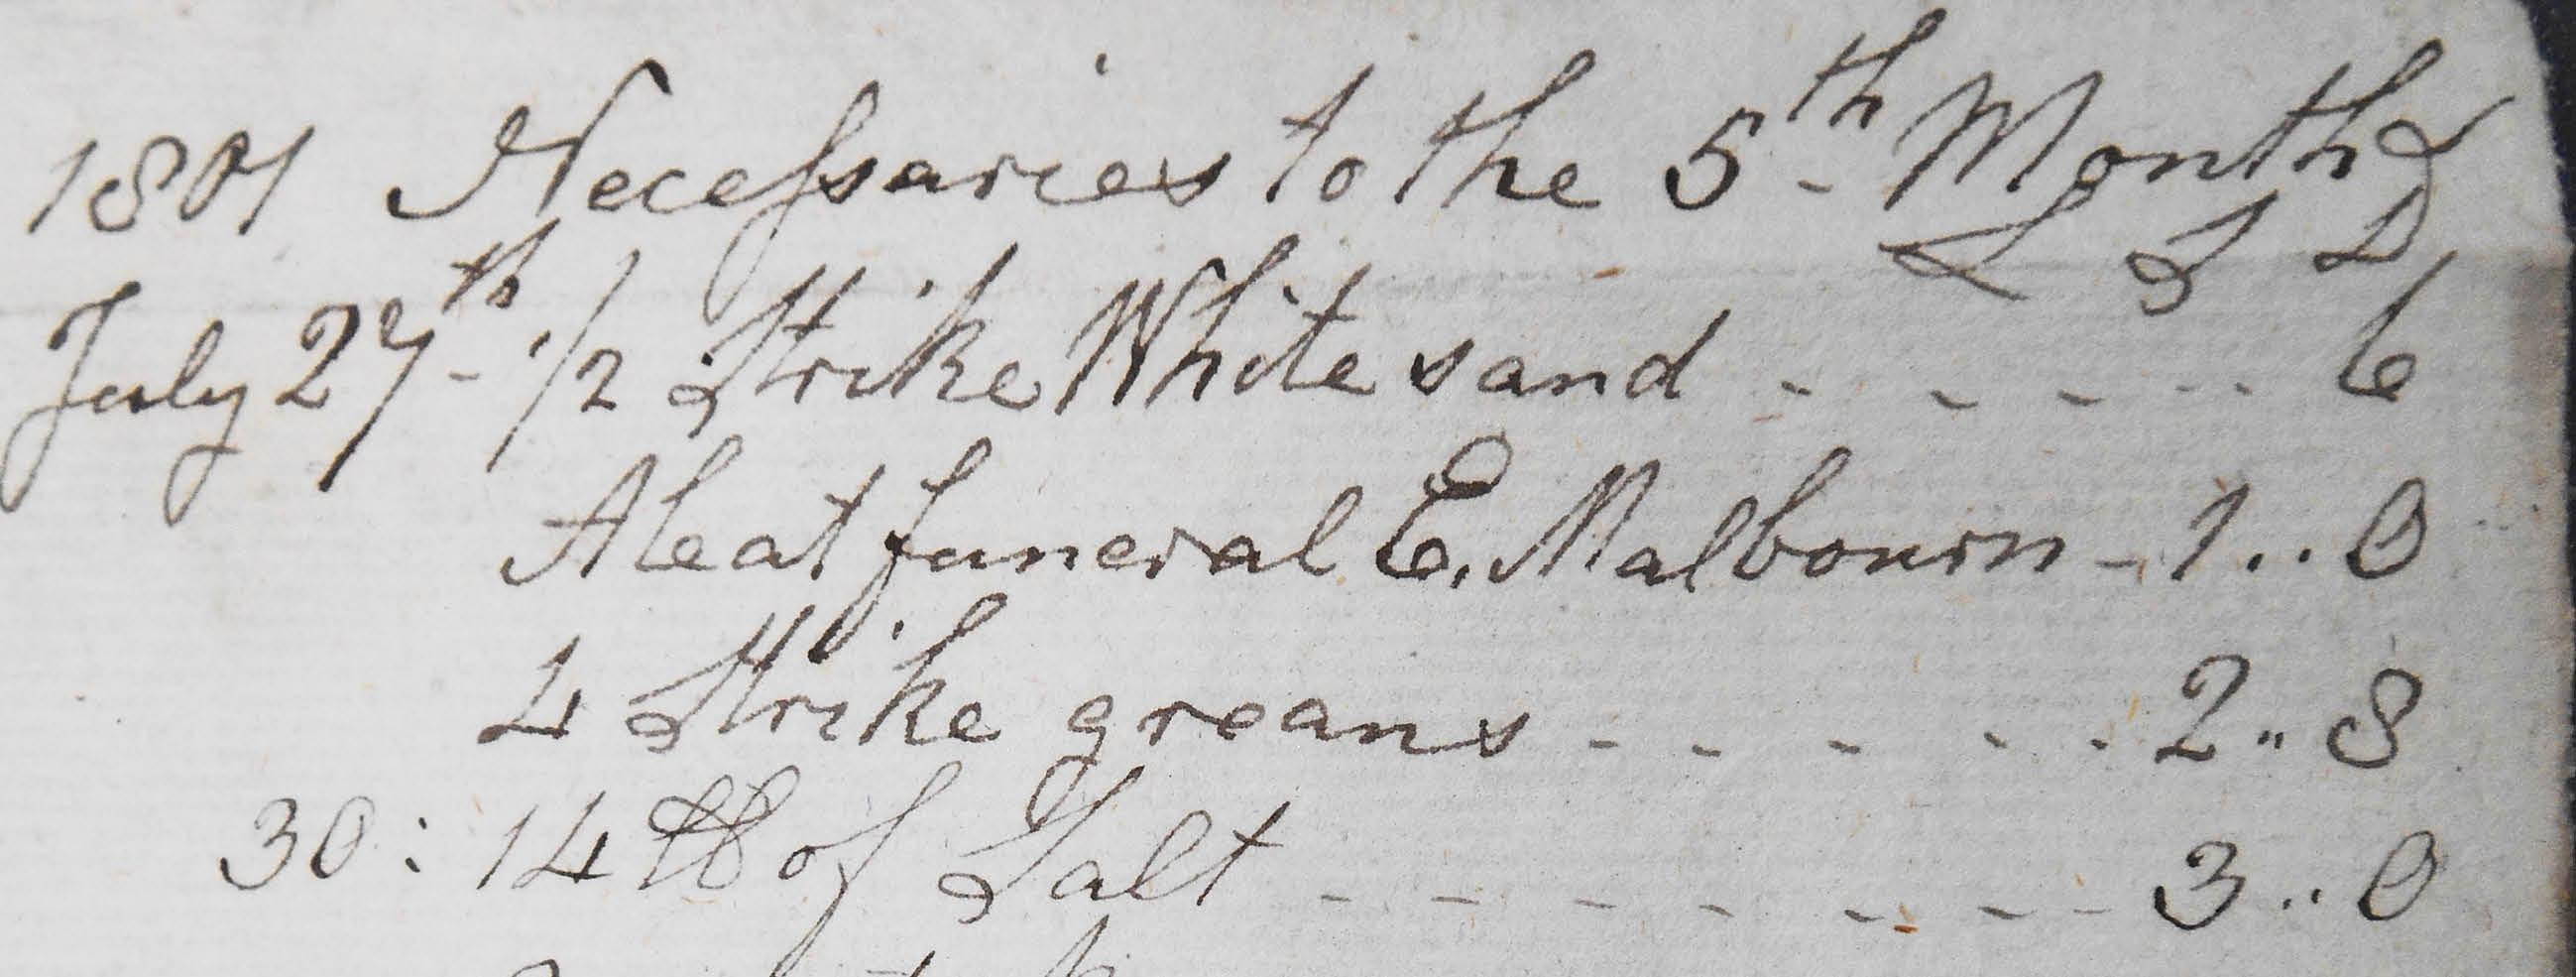 1801 Necessaries to the 5th Month
L S D
July 27th - 1/2 Strike White sand - - - - - 6
Ale at funeral E. Malbourn - 1 .. 0
4 Strike greans - - - - - 2 " 8
30 : 14 lb of Salt - - - - - - - 3 .. 0